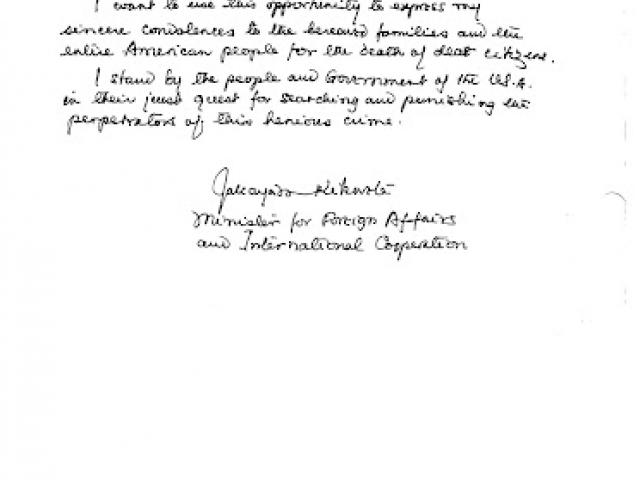 I want to use this opportunity to express my
sincere condolences to the bereaved families and the
entire American people for the death of dear citizens.
I stand by the people and Government of the U.S.A.
in their just quest for searching and punishing the
perpetrators of this henious crime.
Jakaya Kikwete
Minister for Foreign Affairs
and International Cooperation